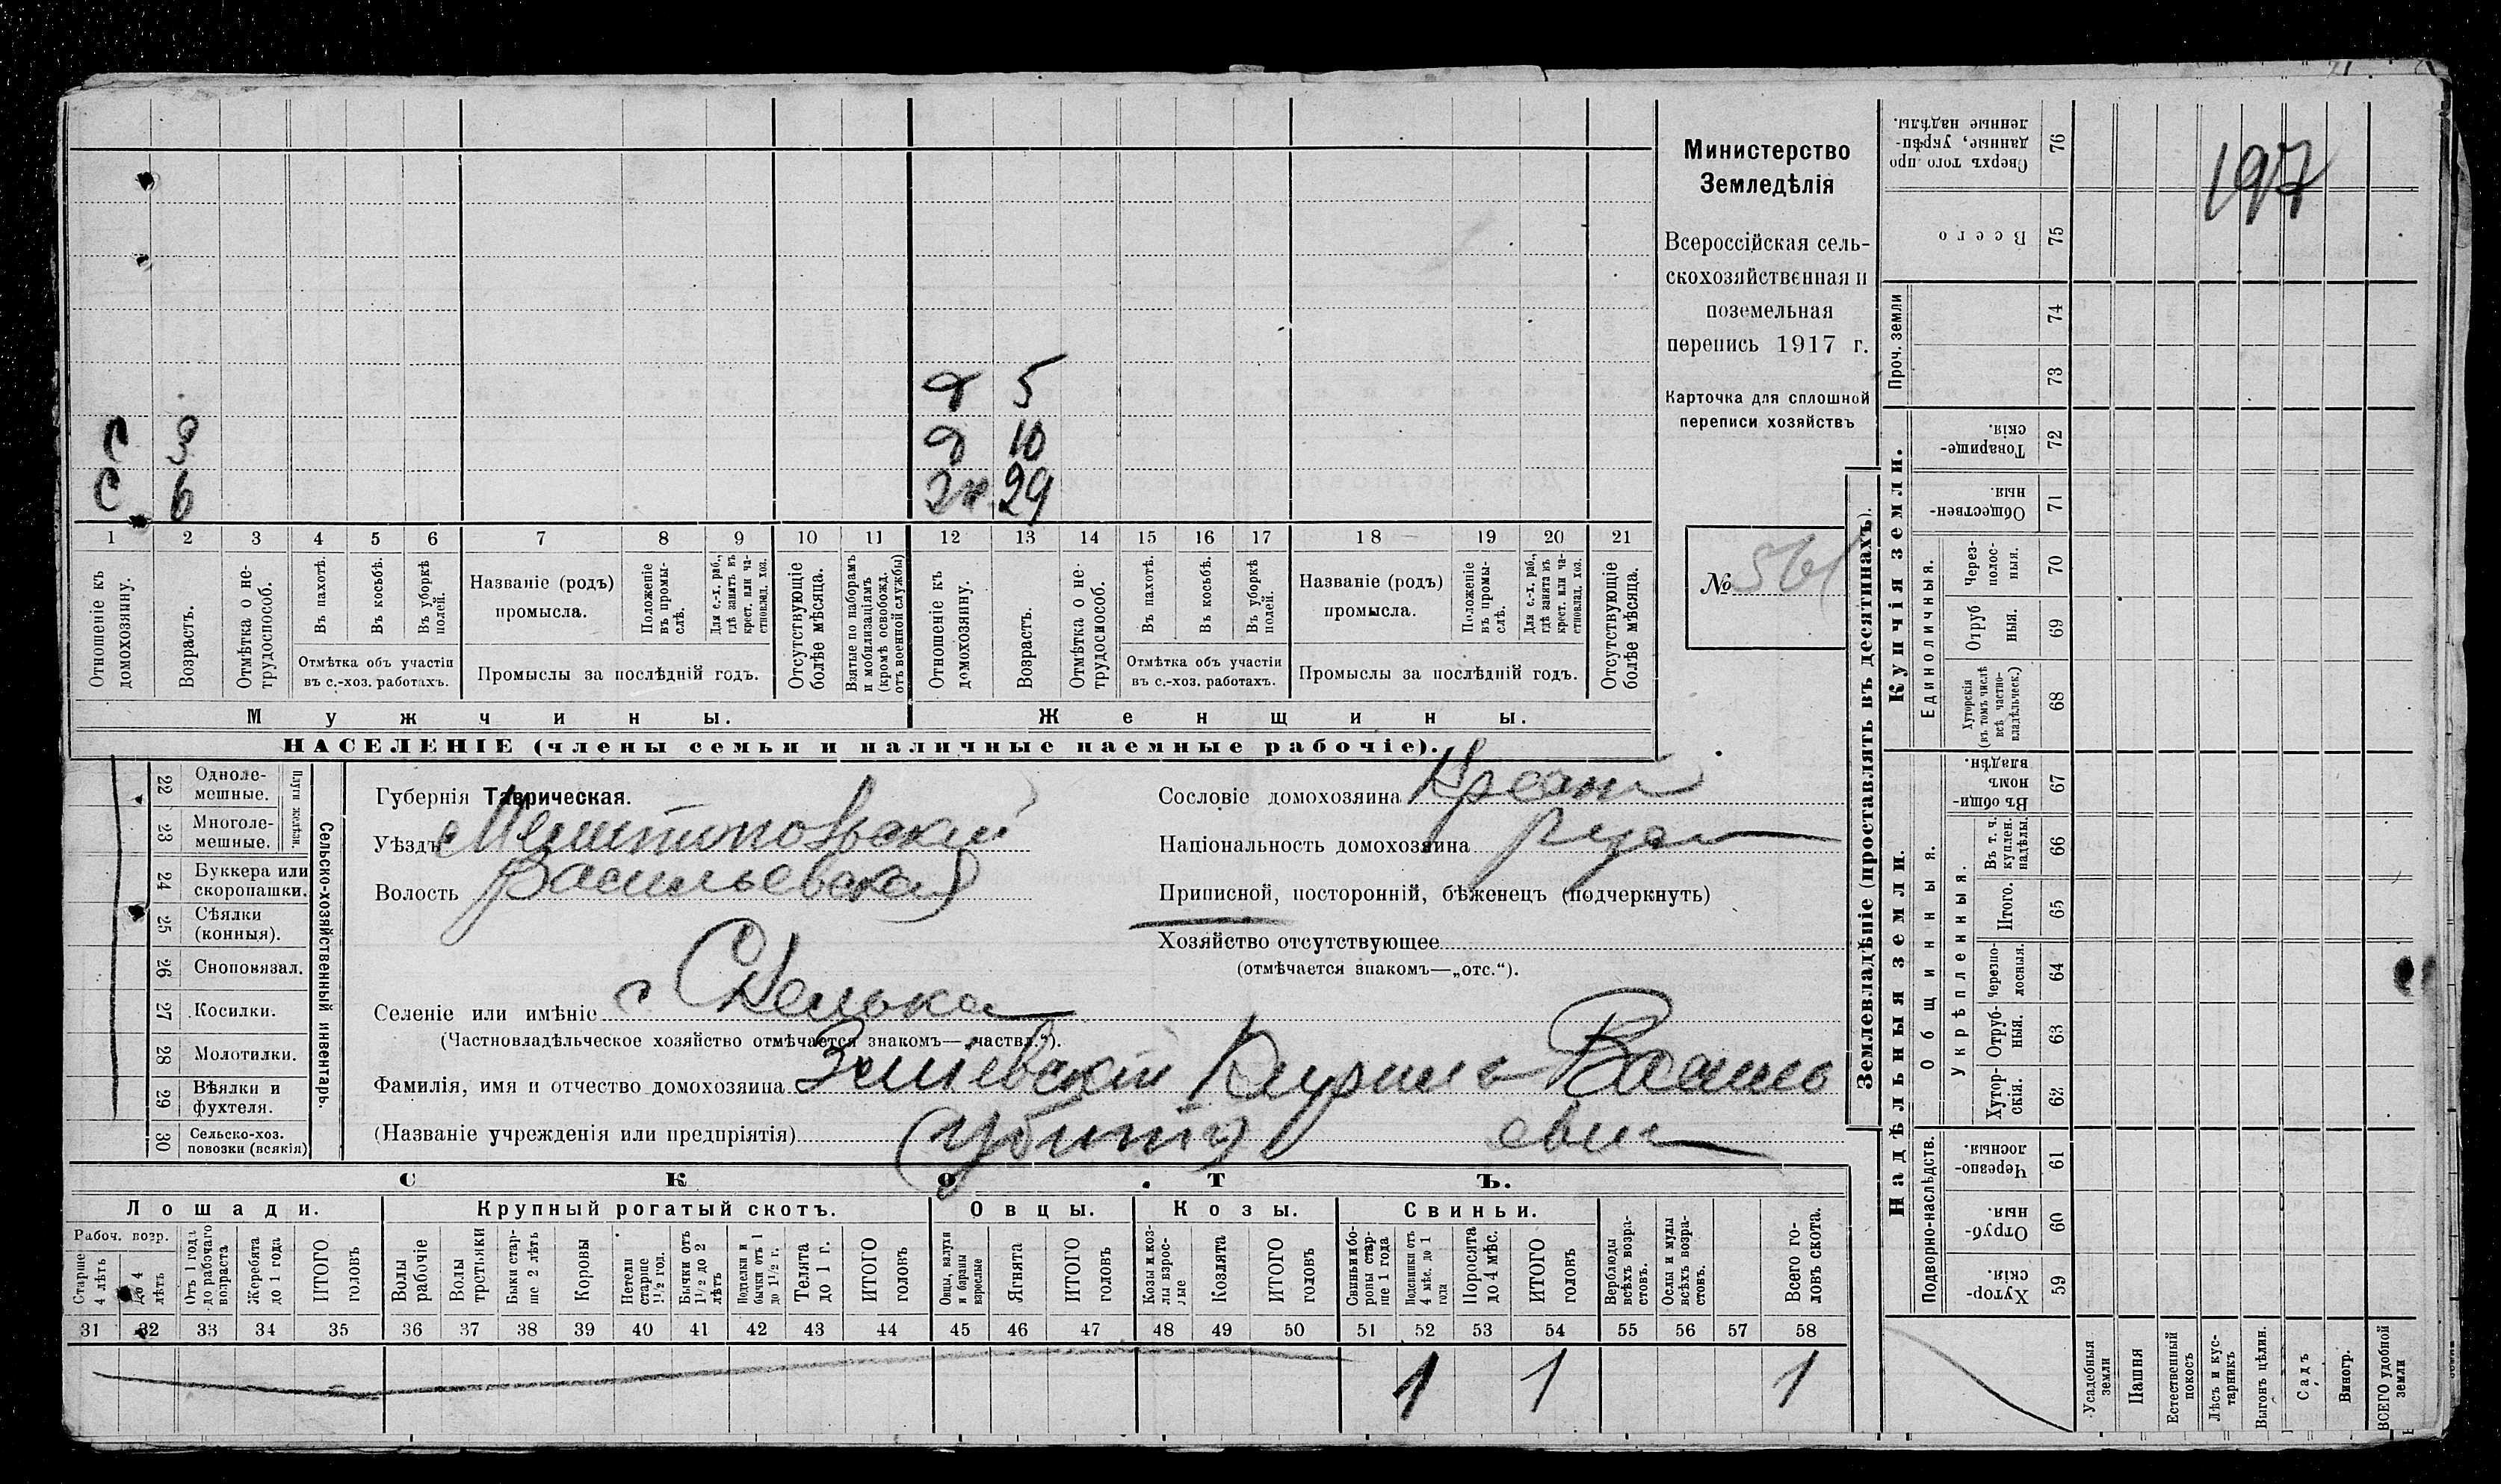 197
Министерство
Земледѣлія
Всероссійская сель-
скохозяйственная и
поземельная
перепись 1917 г.
Карточка для сплошной
переписи хозяйствъ
№ 561
д 5
с 3 д 10
с 6 ж 29
1 2 3 4 5 6 7 8 9 10 11 12 13 14 15 16 17 18 19 20 21
Отношеніе къ домохозяину.
Возрастъ.
Отмѣтка о не-трудоспособ.
Въ пахотѣ.
Въ косьбѣ.
Въ уборкѣ полей.
Отмѣтка объ участіи въ с.-хоз. работахъ.
Названіе (родъ) промысла.
Положеніе въ промы-слѣ.
Для с.-х. раб., гдѣ занятъ въ крест. или ча-стновлад. хоз.
Промыслы за послѣдній годъ.
Отсутствующіе болѣе мѣсяца.
Взятые по наборамъ и мобилизаціямъ (кромѣ освобожд. отъ военной службы)
Отношеніе къ домохозяину.
Возрастъ.
Отмѣтка о не-трудоспособ.
Въ пахотѣ.
Въ косьбѣ.
Въ уборкѣ полей.
Отмѣтка объ участіи въ с.-хоз. работахъ.
Названіе (родъ) промысла.
Положеніе въ промы-слѣ.
Для с.-х. раб., гдѣ занята въ крест. или ча-стновлад. хоз.
Промыслы за послѣдній годъ.
Отсутствующіе болѣе мѣсяца.
Мужчины. Женщины.
НАСЕЛЕНІЕ (члены семьи и наличные наемные рабочіе).
Сельско-хозяйственный инвентарь.
Плуги желѣзн.
22 Одноле-мешные.
23 Многоле-мешные.
24 Буккера или скоропашки.
25 Сѣялки (конныя).
26 Сноповязал.
27 Косилки.
28 Молотилки.
29 Вѣялки и фухтеля.
30 Сельско-хоз. повозки (всякія)
Губернія Таврическая.
Уѣздъ Мелитопольскій
Волость Васильевская
Селеніе или имѣніе с Скелька
(Частновладѣльческое хозяйство отмѣчается знакомъ—„частвл.“).
Фамилія, имя и отчество домохозяина Зміевскій Кирило Василь
(Названіе учрежденія или предпріятія) (убитій) евич
Сословіе домохозяина Кресан
Національность домохозяина Рус
Приписной, посторонній, бѣженецъ (подчеркнуть)
Хозяйство отсутствующее
(отмѣчается знакомъ—„отс.“).
СКОТЪ.
Лошади. Крупный рогатый скотъ. Овцы. Козы. Свиньи.
Рабоч. возр.
Старше 4 лѣтъ
До 4 лѣтъ
Отъ 1 года до рабочаго возраста
Жеребята до 1 года
ИТОГО головъ
Волы рабочіе
Волы третьяки
Быки стар-ше 2 лѣтъ
Коровы
Нетели старше 1½ год.
Бычки отъ 1½ до 2 лѣтъ
Подтелки и бычки отъ 1 до 1½ г.
Телята до 1 г.
ИТОГО головъ
Овцы, валухи и бараны взрослые
Ягнята
ИТОГО головъ
Козы и коз-лы взрос-лые
Козлята
ИТОГО головъ
Свиньи и бо-ровы стар-ше 1 года
Подсвинки отъ 4 мѣс. до 1 года
Поросята до 4 мѣс.
ИТОГО головъ
Верблюды всѣхъ возра-стовъ.
Ослы и мулы всѣхъ возра-стовъ.
Всего го-ловъ скота.
31 32 33 34 35 36 37 38 39 40 41 42 43 44 45 46 47 48 49 50 51 52 53 54 55 56 57 58
1 1 1
Землевладѣніе (проставлять въ десятинахъ).
Надѣльныя земли. Купчія земли.
Подворно-наслѣдств.
Общинныя.
Укрѣпленныя.
Единоличныя.
Проч. земли
Хутор-скія. 59
Отруб-ныя. 60
Черезпо-лосныя. 61
Хутор-скія. 62
Отруб-ныя. 63
Черезпо-лосныя. 64
Итого. 65
Въ т. ч. куплен. надѣлы. 66
Въ общи-номъ владѣн. 67
Хуторскія (въ томъ числѣ всѣ частно-владѣльческ.) 68
Отруб ныя. 69
Через-полос-ныя. 70
Обществен-ныя. 71
Товарище-скія. 72
73
74
Всего 75
Сверхъ того про-данные, укрѣп-ленные надѣлы. 76
Усадебныя земли
Пашня
Естественный покосъ
Лѣсъ и кус-тарникъ
Выгонъ цѣлин.
Садъ
Виногр.
ВСЕГО удобной земли